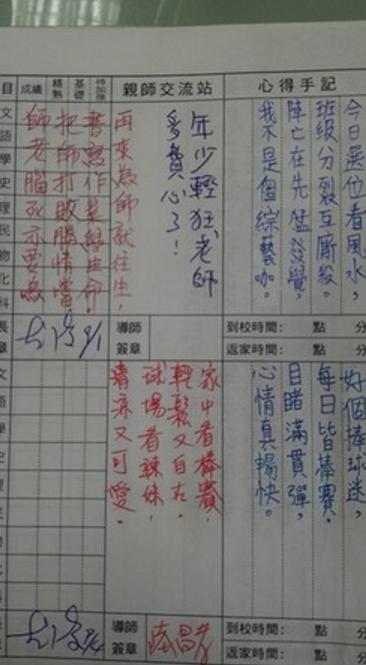 心得手記
今日選位看風水，
班級分裂互廝殺。
陣亡在先猛發覺，
我不是個綜藝咖。
親師交流站
年少輕狂，老師
多費心了！
再來為師就往生，
書寫作業是與生命，
把師打敗勝情當
師老腦死亦要
待加強
基礎
精熟
成績
目
文
語
學
史
理
民
物
化
科
到校時間： 點 分
返家時間： 點 分
導師
簽章
長
章
好個棒球迷，
每日皆棒賽，
目睹滿貫彈，
心情真暢快。
家中看棒賽，
輕鬆又自在，
球場看辣妹，
清涼又可愛。
到校時間： 點 分
返家時間： 點 分
導師
簽章